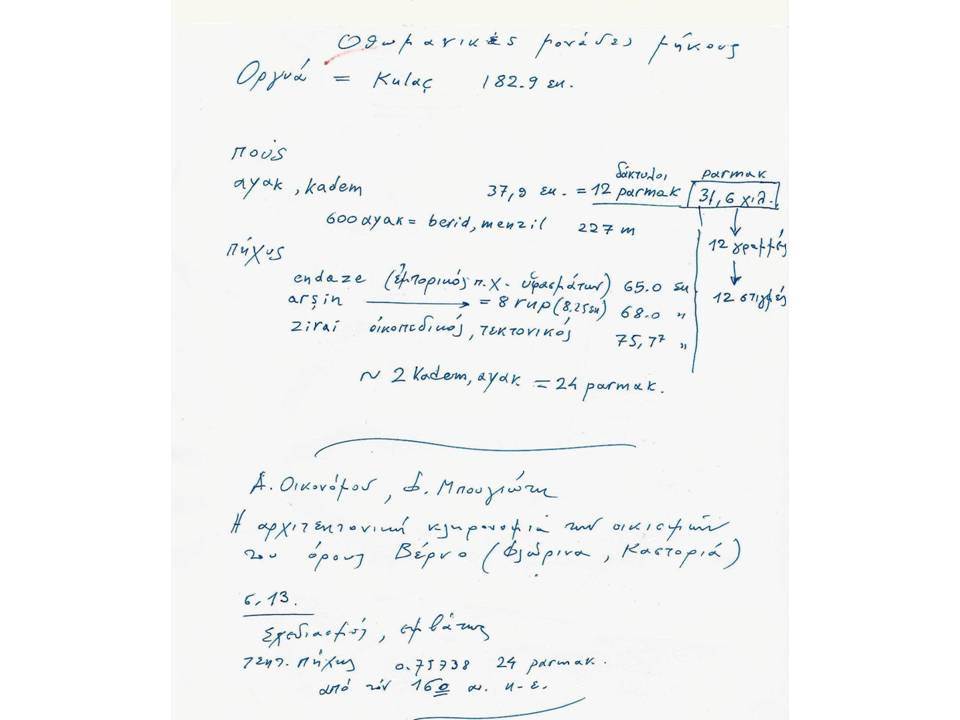 Οθωμανικές μονάδες μήκους
Οργυά = Kulaç 182.9 εκ.
πούς
δάκτυλοι parmak
ayak, kadem 37,9 εκ. = 12 parmak 31,6 χιλ.
600 ayak = berid, menzil 227 m
12 γραμμές
πήχυς
endaze (ἐμπορικός π.χ. ὑφασμάτων) 65.0 εκ.
12 στιγμές
arşin = 8 rup (8.25εκ) 68.0 "
zirai οἰκοπεδικός, τεκτονικός 75,77 "
~ 2 Kadem, ayak = 24 parmak.
Α. Οικονόμου, Φ. Μπουγιώτη
Η αρχιτεκτονική κληρονομιά των οικισμών
του όρους Βέρνο (Φλώρινα, Καστοριά)
σ.13.
Σχεδιασμός, εμβάτης
τεκτ. πήχης 0.75738 24 parmak.
από τον 16ο α. κ.ε.